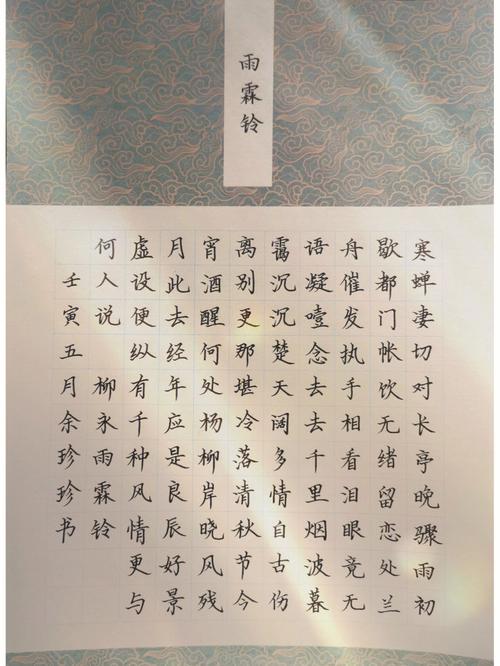 雨霖铃
寒蝉凄切对长亭晚骤雨初
歇都门帐饮无绪留恋处兰
舟催发执手相看泪眼竟无
语凝噎念去去千里烟波暮
霭沉沉楚天阔多情自古伤
离别更那堪冷落清秋节今
宵酒醒何处杨柳岸晓风残
月此去经年应是良辰好景
虚设便纵有千种风情更与
何人说 柳永雨霖铃
壬寅五月余珍珍书